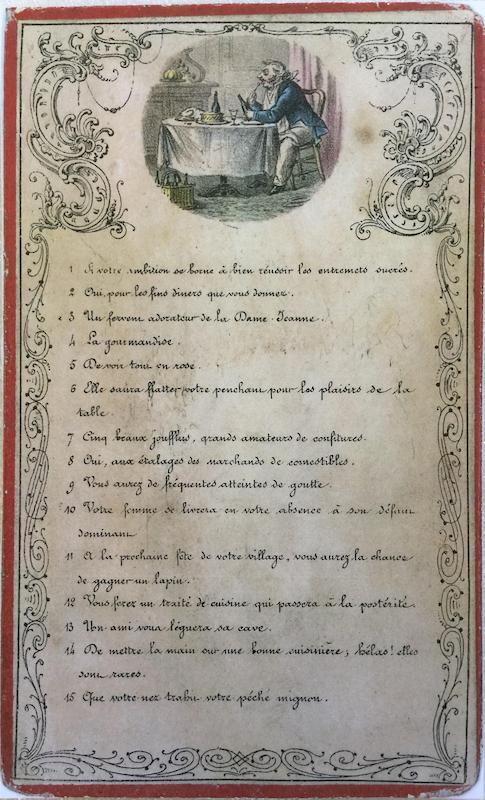 1 Si votre ambition se borne à bien réussir les entremets sucrés.
2 Oui, pour les fins diners que vous donnez.
3 Un fervent adorateur de la Dame-Jeanne.
4 La gourmandise.
5 De voir tout en rose.
6 Elle saura flatter votre penchant pour les plaisirs de la
table.
7 Cinq beaux joufflus, grands amateurs de confitures.
8 Oui, aux étalages des marchands de comestibles.
9 Vous aurez de fréquentes atteintes de goutte.
10 Votre femme se livrera en votre absence à son défaut
dominant
11 A la prochaine fête de votre village, vous aurez la chance
de gagner un lapin.
12 Vous ferez un traité de cuisine qui passera à la postérité.
13 Un ami vous léguera sa cave.
14 De mettre la main sur une bonne cuisinière; hélas! elles
sont rares.
15 Que votre nez trahit votre péché mignon.